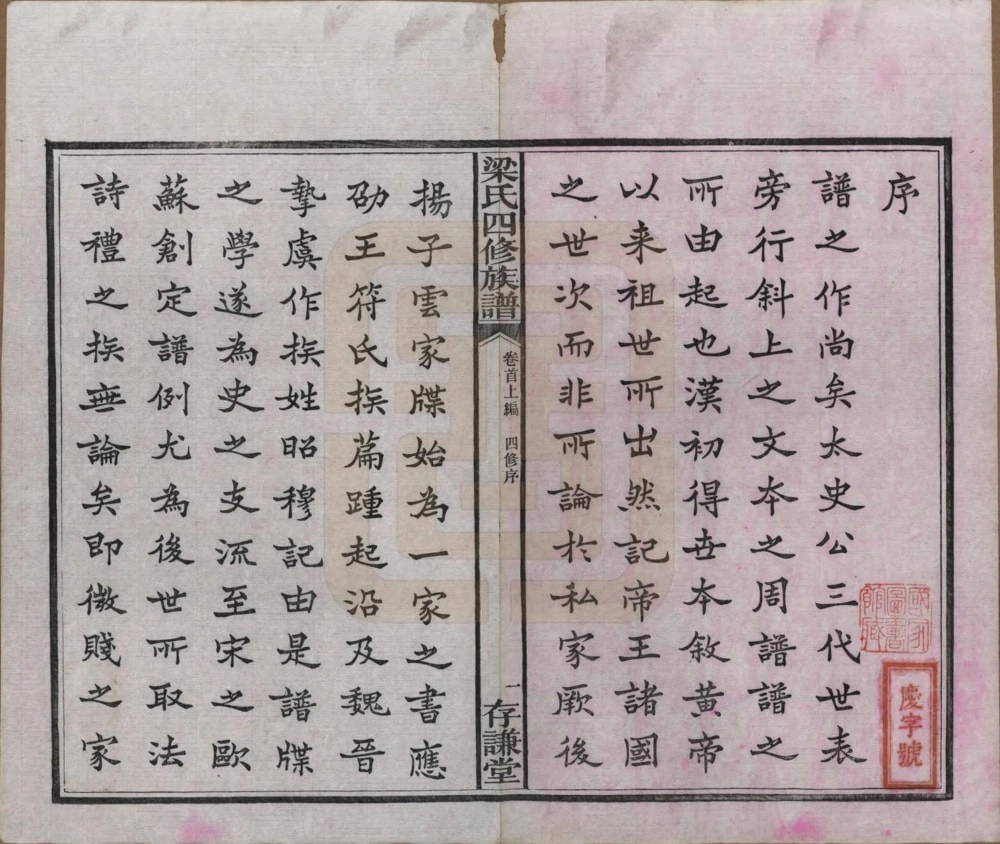 序
譜之作尚矣太史公三代世表
旁行斜上之文夲之周譜譜之
所由起也漢初得世本敘黃帝
以来祖世所出然記帝王諸國
之世次而非所論於私家厥後
梁氏四修族譜
卷首上編 四修序
一
存謙堂
揚子雲家牒始為一家之書應
劭王符氏族篇踵起沿及魏晉
摯虞作族姓昭穆記由是譜牒
之學遂為史之支流至宋之歐
蘇創定譜例尤為後世所取法
詩禮之族無論矣即微賤之家
圖書
慶字號